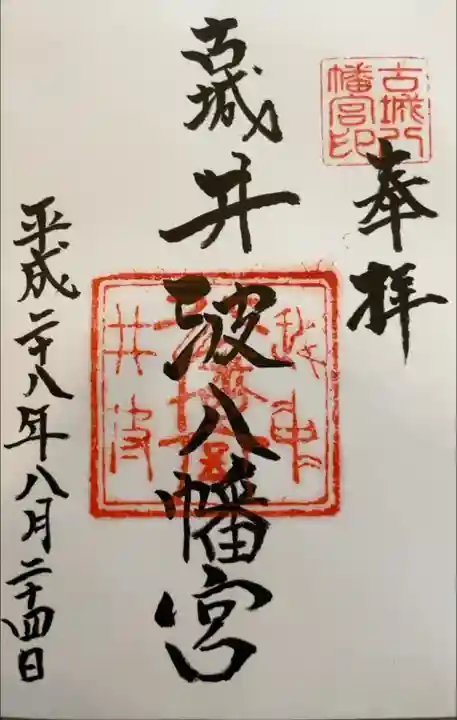 奉拝
古城
八幡宮印
古城井波八幡宮
井波
平成二十八年八月二十四日